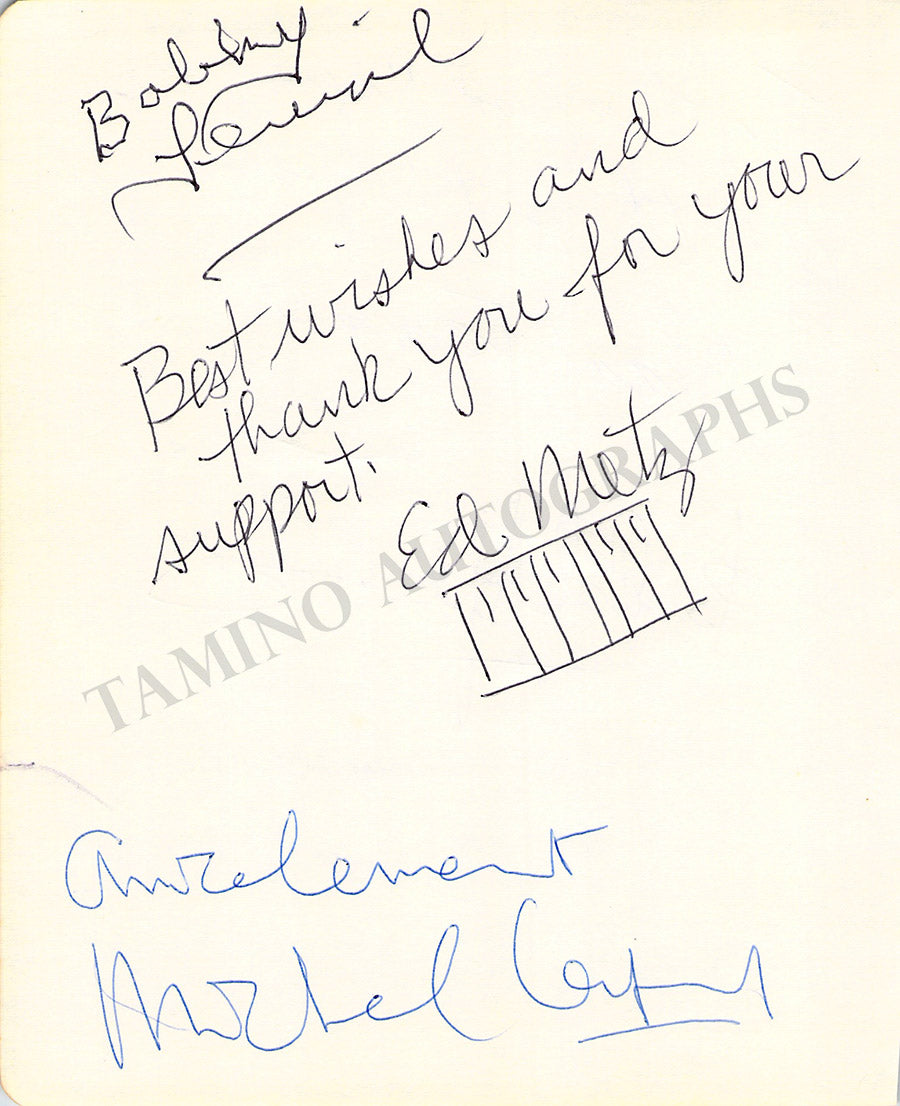 Bobby
Best wishes and
thank you for your
support.
Ed Metz
TAMINO AUTOGRAPHS
Amicalement
Michel